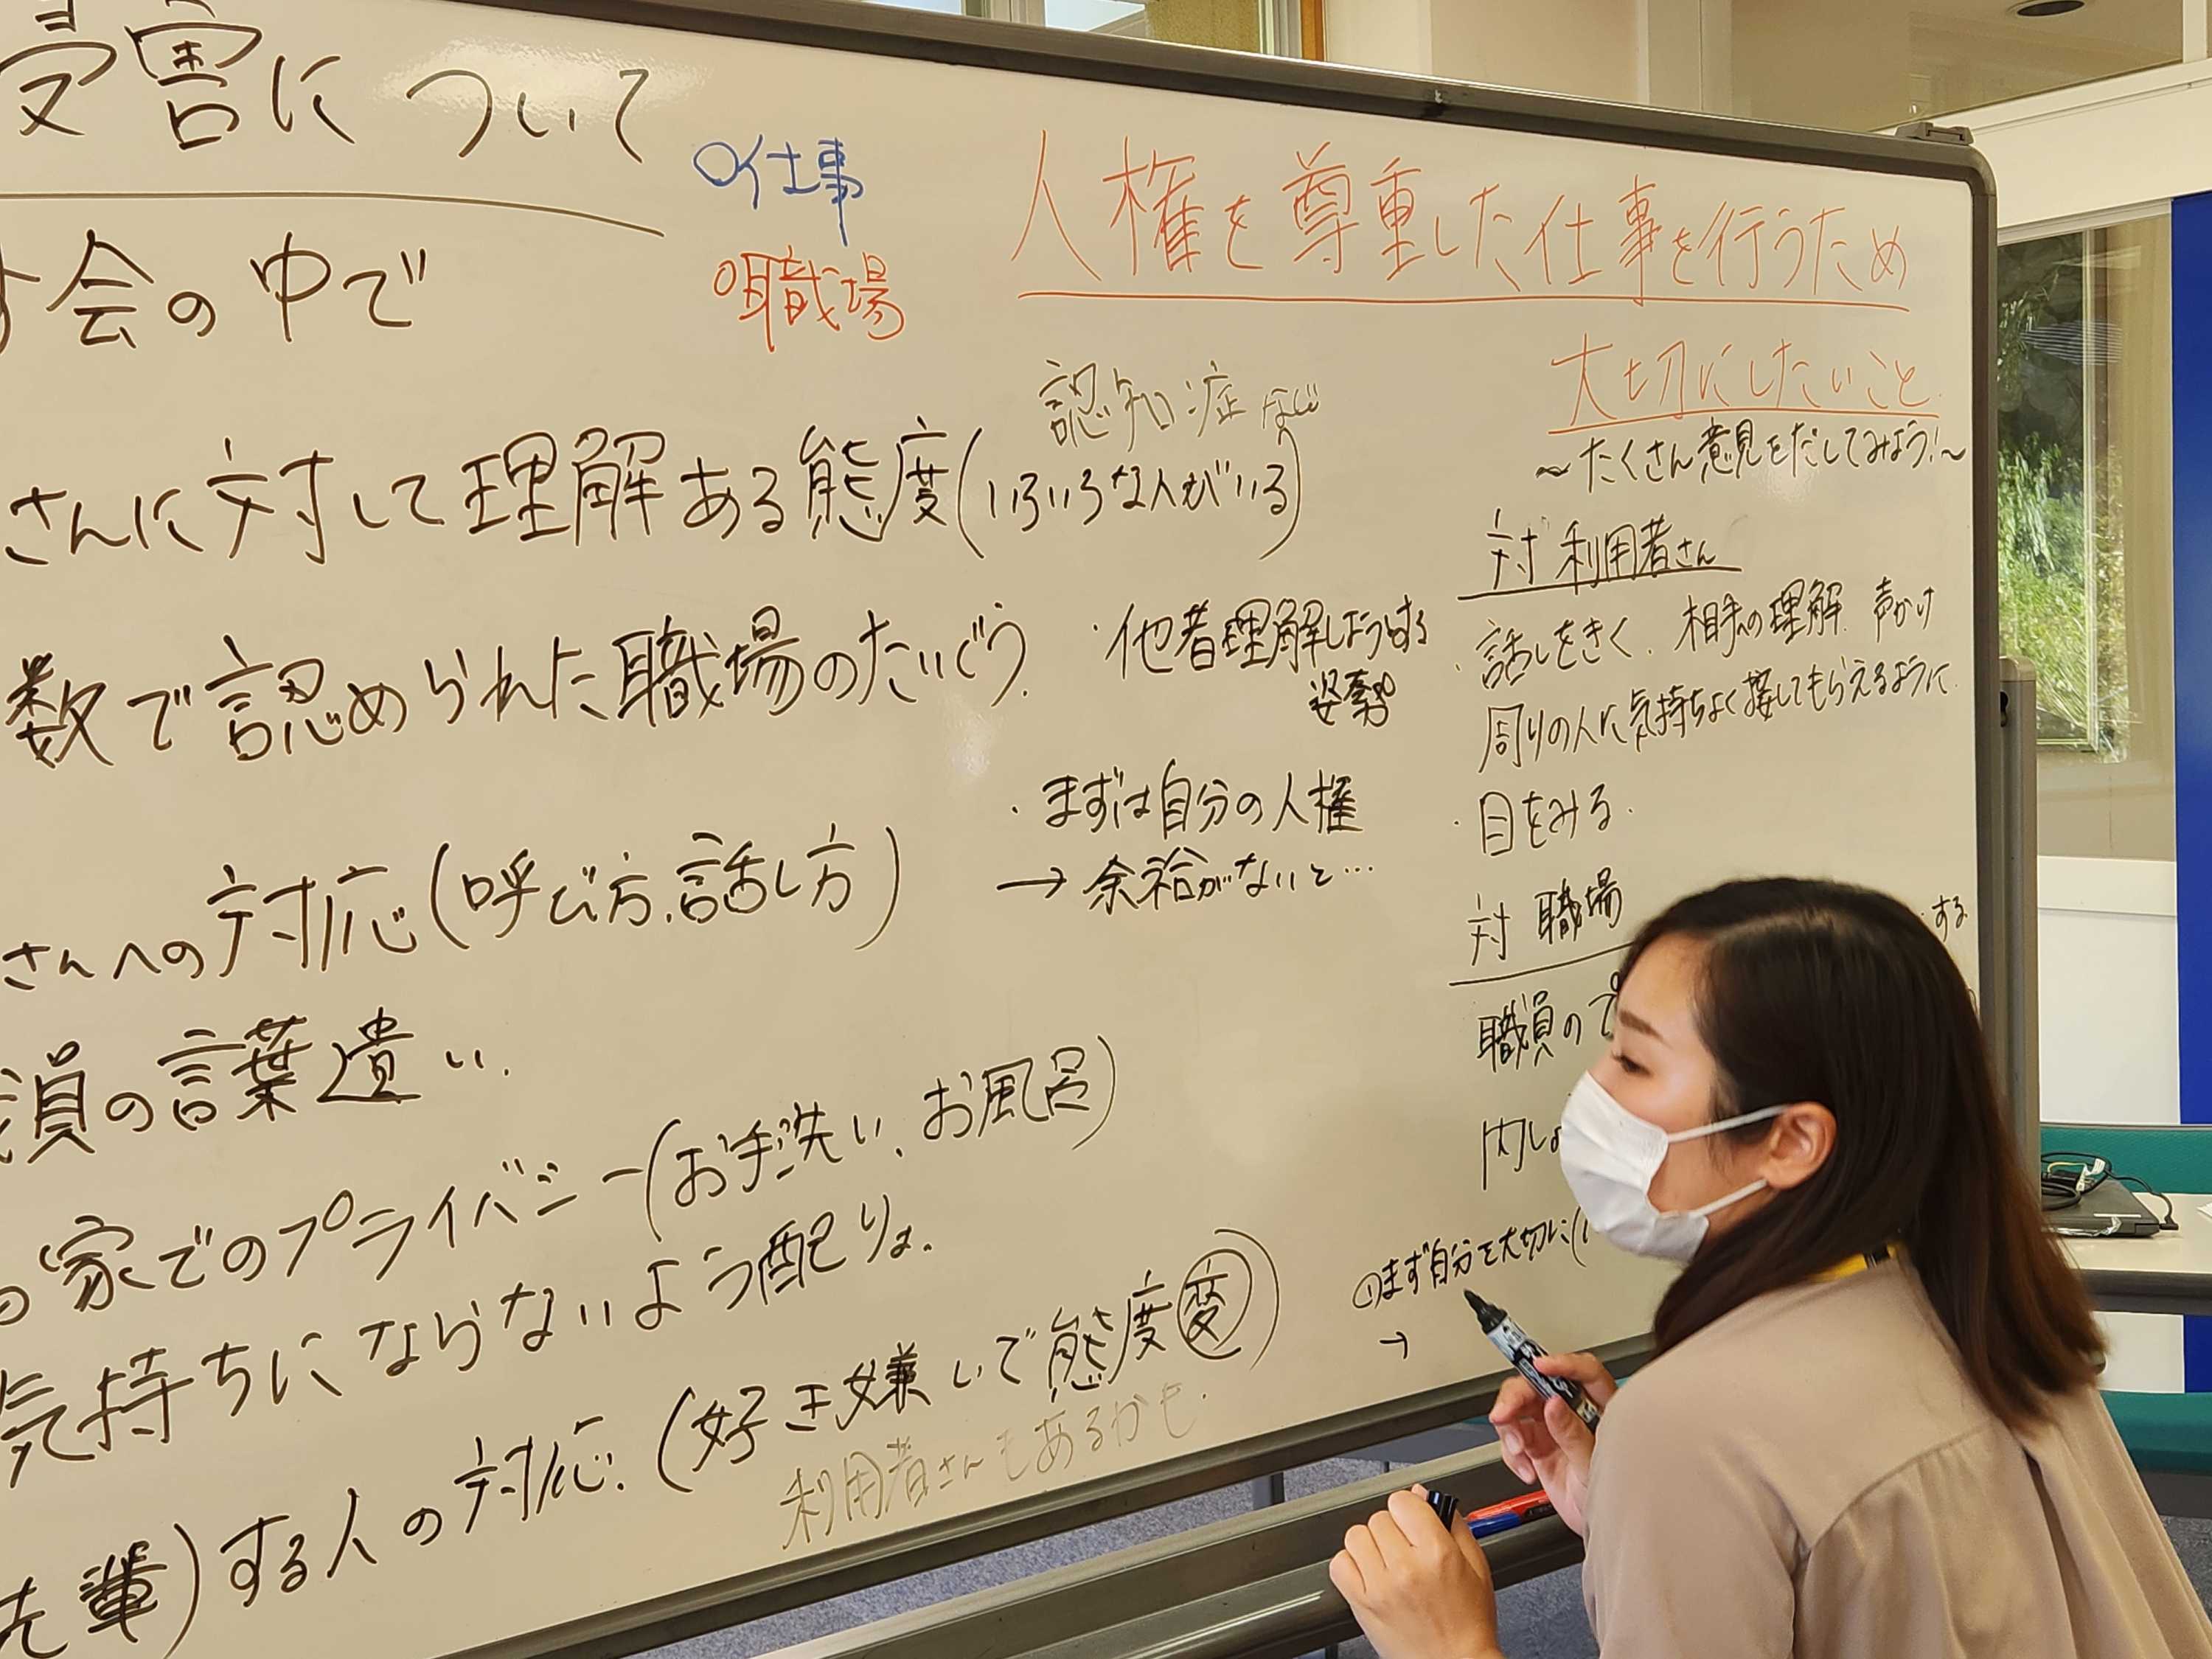 害について
会の中で
さんに対して理解ある態度(いろいろな人がいる)
数で認められた職場のたいぐう.
さんへの対応(呼び方、話し方)
員の言葉遣い.
家でのプライバシー(お手洗い、お風呂)
気持ちにならないよう配りょ.
輩)する人の対応.(好き嫌いで態度変)
利用者さんもあるかも.
○仕事
○職場
認知症など
・他者理解しようとする
姿勢
・まずは自分の人権
→余裕がないと…
人権を尊重した仕事を行うため
大切にしたいこと.
~たくさん意見をだしてみよう!~
対 利用者さん
・話しをきく. 相手の理解. 声かけ
周りの人に気持ちよく接してもらえるように.
・目をみる.
対 職場
する
職員のプ
内しょ
①まず自分を大切に(
→